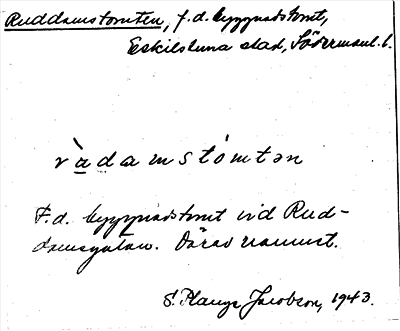 Ruddamstomten, f.d. byggnadstomt,
Eskilstuna stad, Söderманl. l.
rà̱damstómtən
F.d. byggnadstomt vid Rud-
damsgatan. Därav namnet.
S. Plauge Jacobson, 1943.